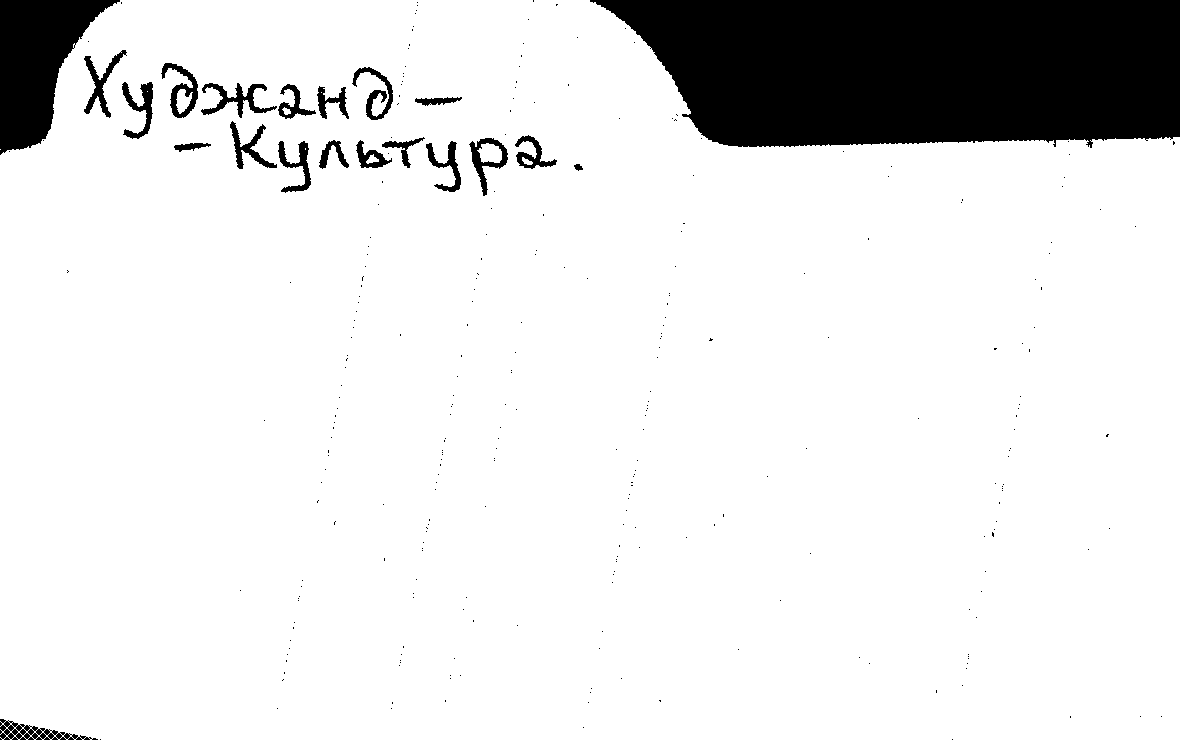 Худжанд –
– Культура.